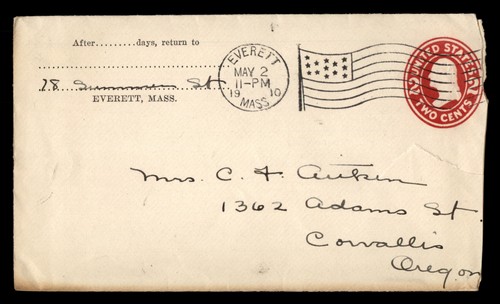 After.........days, return to
78 Summer St
EVERETT, MASS.
EVERETT
MAY 2
11-PM
19 10
MASS
UNITED STATES
2 2
TWO CENTS
Mrs. C. F. Aitken
1362 Adams St.
Corvallis
Oregon